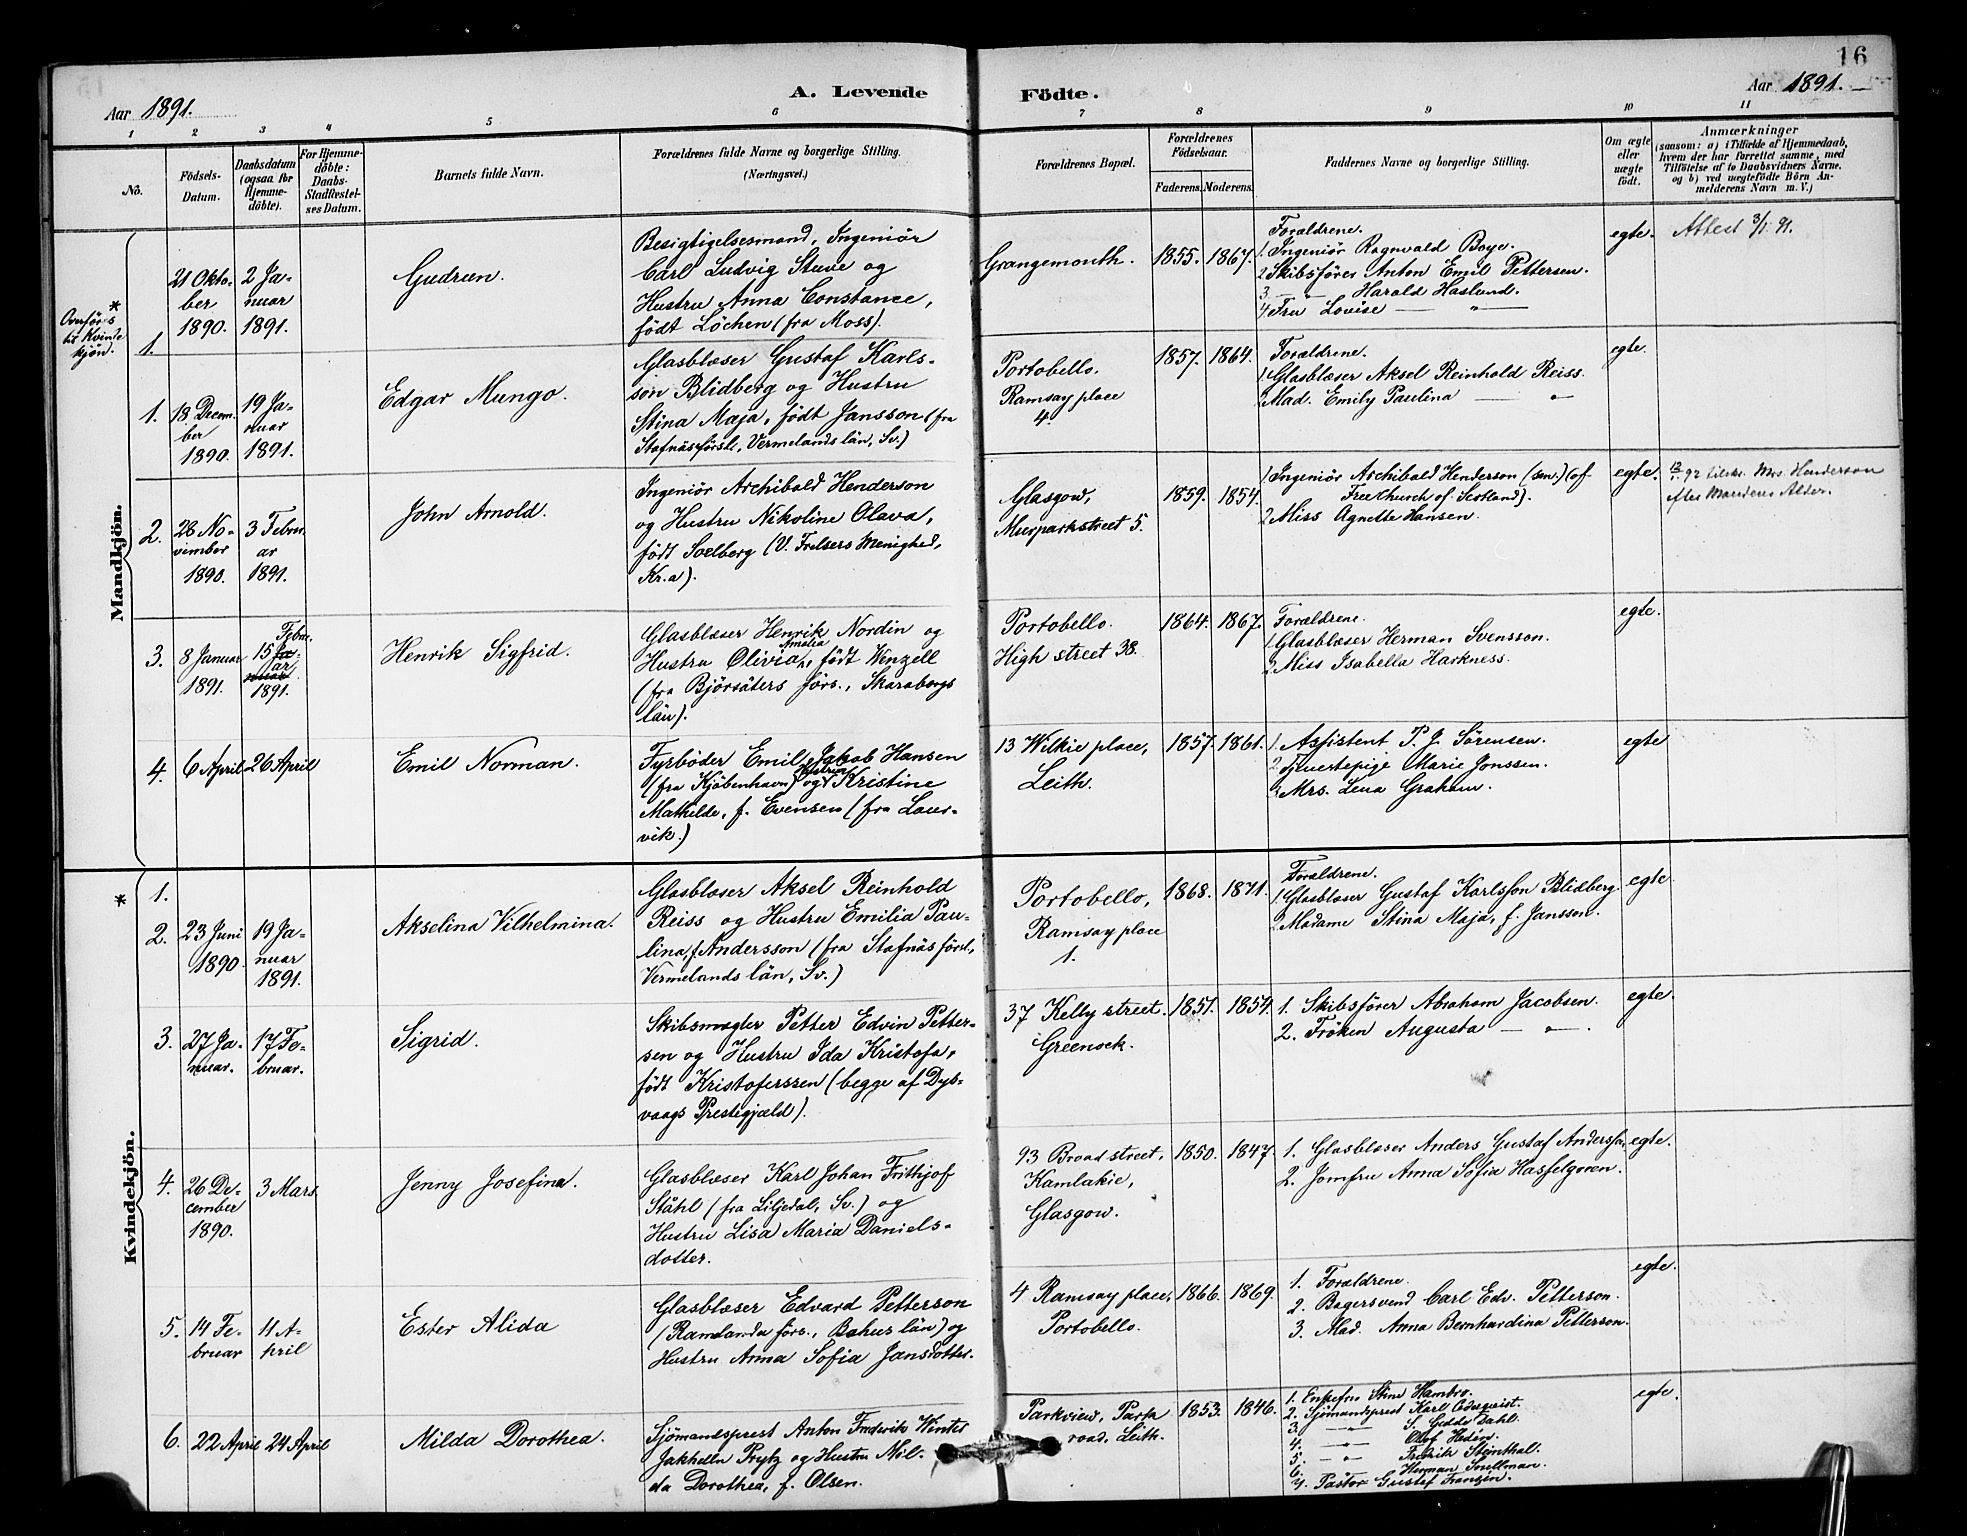 16
Aar 1891.
A. Levende Födte.
Aar 1891.
1 2 3 4 5 6 7 8 9 10 11
Nó.
Födsels-
Datum.
Daabsdatum
(ogsaa for
Hjemme-
döbte).
For Hjemme-
döbte:
Daabs-
Stadfæstel-
ses Datum.
Barnets fulde Navn.
Forældrenes fulde Navne og borgerlige Stilling.
(Næringsvei.)
Forældrenes Bopæl.
Forældrenes
Födselsaar.
Faderens.
Moderens.
Faddernes Navne og borgerlige Stilling.
Om ægte
eller
uægte
födt.
Anmærkninger
(saasom: a) i Tilfælde af Hjemmedaab,
hvem der har forrettet samme, med
Tilföielse af to Daabsvidners Navne.
og b) ved uægtefödte Börn An-
melderens Navn m. V.)
Mandkjön.
*
Overföres
til Kvinde
kjön.
1.
21 Okto-
ber
1890.
2 Ja-
nuar
1891.
Gudrun.
Besigtigelsesmand, Ingeniör
Carl Ludvig Stuve og
Hustru Anna Constance,
födt Löchen (fra Moss).
Grangemouth.
1855.
1867.
Forældrene.
1. Ingeniör Ragnvald Boye.
2. Skibsförer Anton Emil Pettersen.
3. — " — Harald Haslund.
4. Fru Lovise — " —
egte.
Attest 3/1 91.
1.
18 Decem-
ber
1890.
19 Ja-
nuar
1891.
Edgar Mungo.
Glasblæser Gustaf Karls-
son Blidberg og Hustru
Stina Maja, födt Jansson (fra
Stafnäs förstl., Vermelands län, Sv.)
Portobello.
Ramsay place
4.
1857.
1864.
Forældrene.
1. Glasblæser Aksel Reinhold Reiss.
2. Mad. Emily Paulina — " —
egte.
2.
28 No-
vember
1890.
3 Febru-
ar
1891.
John Arnold.
Ingeniör Archibald Henderson
og Hustru Nikoline Olava,
födt Soelberg (V. Frelsers Menighed,
Kr.a).
Glasgow,
Muirparkstreet 5.
1859.
1854.
1. Ingeniör Archibald Henderson (sen.) (of
Free Church of Scotland).
2. Miss Agnette Hansen.
egte.
Mrs. Henderson
efter Mandens Alder.
3.
8 Januar
1891.
15 Febru-
ar
1891.
Henrik Sigfrid.
Glasblæser Henrik Nordin og
Hustru Olivia Amalia, födt Wenzell
(fra Björsäters förs., Skaraborgs
län).
Portobello.
High street 38.
1864.
1867.
Forældrene.
1. Glasblæser Herman Svensson.
2. Miss Isabella Harkness.
egte.
4.
6 April
26 April
Emil Norman.
Fyrböder Emil Jakob Hansen
(fra Kjöbenhavn) og Hustru Kristine
Mathilde, f. Evensen (fra Laur-
vik.)
13 Wilkie place,
Leith.
1857.
1861.
1. Assistent P. J. Sörensen.
2. Tjenestepige Marie Jonssen.
3. Mrs. Lena Graham.
egte
Kvindekjön.
* 1.
2.
23 Juni
1890.
19 Ja-
nuar
1891.
Akselina Vilhelmina.
Glasblæser Aksel Reinhold
Reiss og Hustru Emilia Pau-
lina, f. Andersson (fra Stafnäs förstl.,
Vermelands län, Sv.)
Portobello,
Ramsay place
1.
1868.
1871.
Forældrene.
1. Glasblæser Gustaf Karlsson Blidberg
2. Madame Stina Maja, f. Jansson.
egte.
3.
27 Ja-
nuar.
17 Fe-
bruar.
Sigrid.
Skibsmægler Petter Edvin Petter-
sen og Hustru Ida Kristofa,
födt Kristoferssen (begge af Dyb-
vaags Prestegjæld).
37 Kelly street.
Greenock.
1851.
1854.
1. Skibsförer Abraham Jacobsen.
2. Fröken Augusta — " — .
egte.
4.
26 De-
cember
1890.
3 Mars.
Jenny Josefina.
Glasblæser Karl Johan Frithjof
Ståhl (fra Liljedal, Sv.) og
Hustru Lisa Maria Daniels-
dotter.
93 Broad street,
Kamlakie,
Glasgow.
1850.
1847.
1. Glasblæser Anders Gustaf Andersson,
2. Jomfru Anna Sofia Hasselgoren.
egte.
5.
14 Fe-
bruar
11 A-
pril
Ester Alida
Glasblæser Edvard Petterson
(Ramlanda förs., Bahus län) og
Hustru Anna Sofia Jansdotter.
4 Ramsay place,
Portobello.
1866.
1869.
1. Forældrene.
2. Bagersvend Carl Edv. Petterson.
3. Mad. Anna Bernhardina Petterson.
egte.
6.
22 April
24 April
Milda Dorothea.
Sjömandsprest Anton Frederik Winter
Jakhelln Prytz og Hustru Mil-
da Dorothea, f. Olsen.
Parkview, Park
road, Leith.
1853.
1846.
1. Enkefru Stine Hambro.
2. Sjömandsprest Karl Edquist.
3. — " — S. Gedde Dahl.
4. — " — Olof Hedén.
5. — " — Fredrik Steinthal.
6. Herman Snellman.
7. Pastor Gustaf Fransén.
egte.